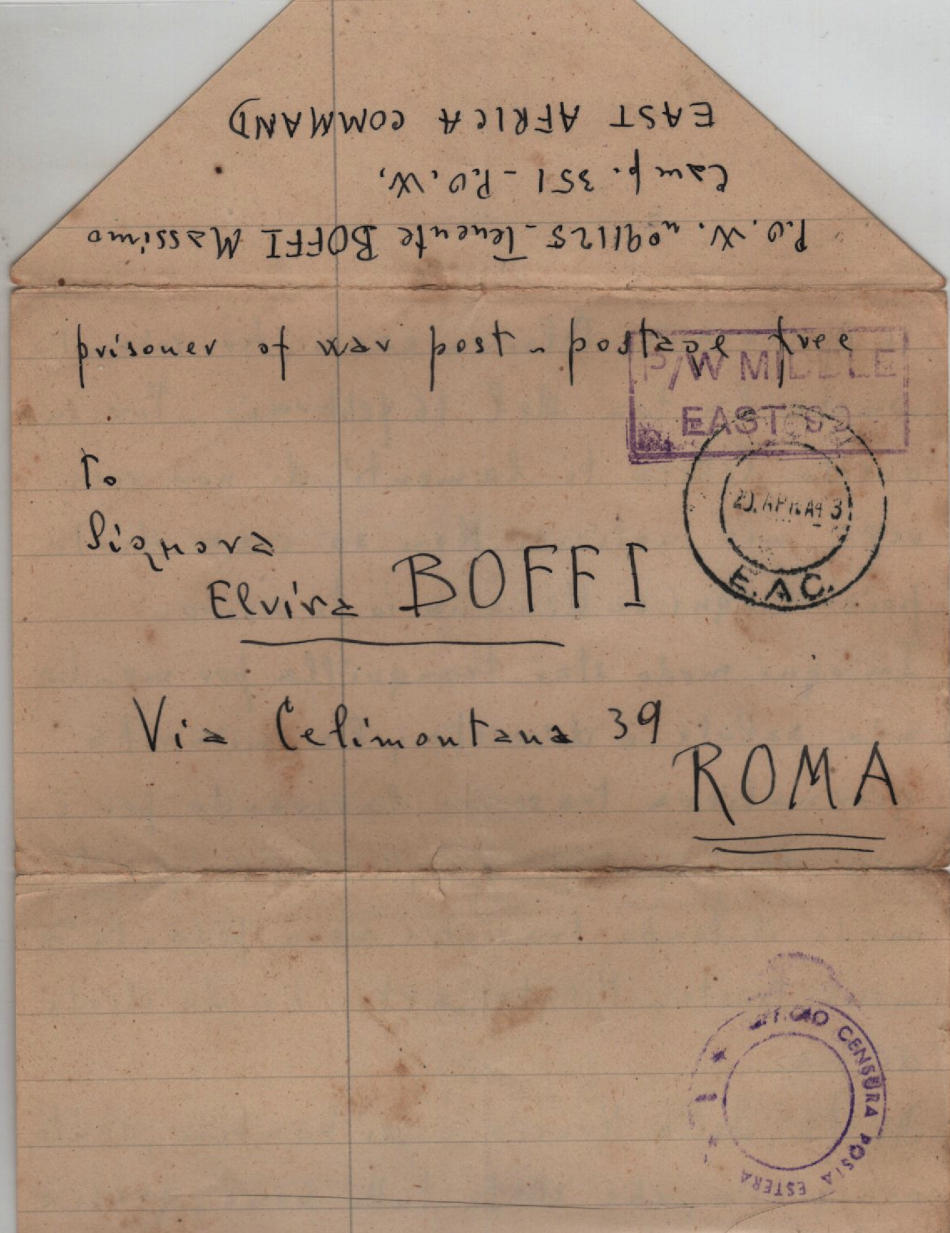 P.O.W. n°91125 - Tenente BOFFI Massimo
Camp. 351 - P.O.W.
EAST AFRICA COMMAND
prisoner of war post - postage free
P/W MIDDLE
EAST 99
To
Signora
Elvira BOFFI
E.A.C.
Via Celimontana 39
ROMA
UFFICIO CENSURA POSTA ESTERA